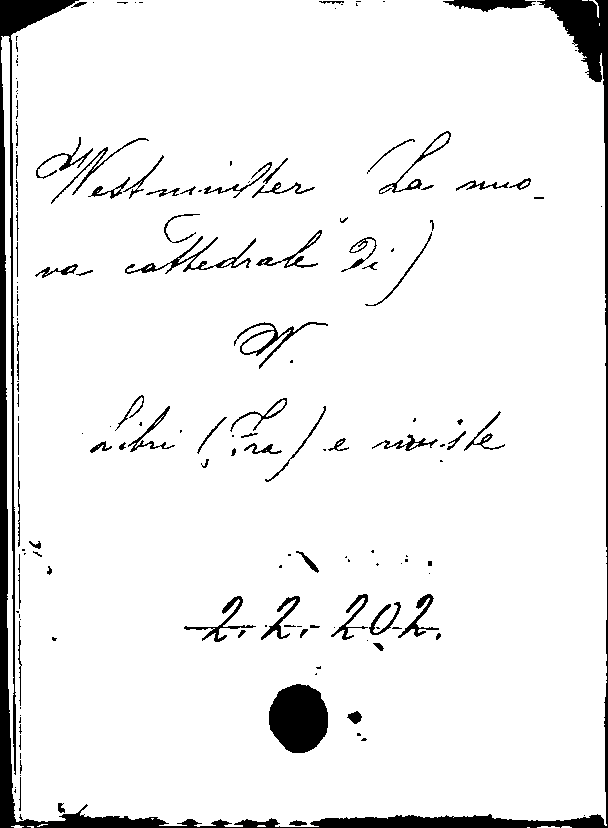 Westminster (La nuo-
va cattedrale di)
W.
Libri (Fra) e riviste
2. 2. 202.